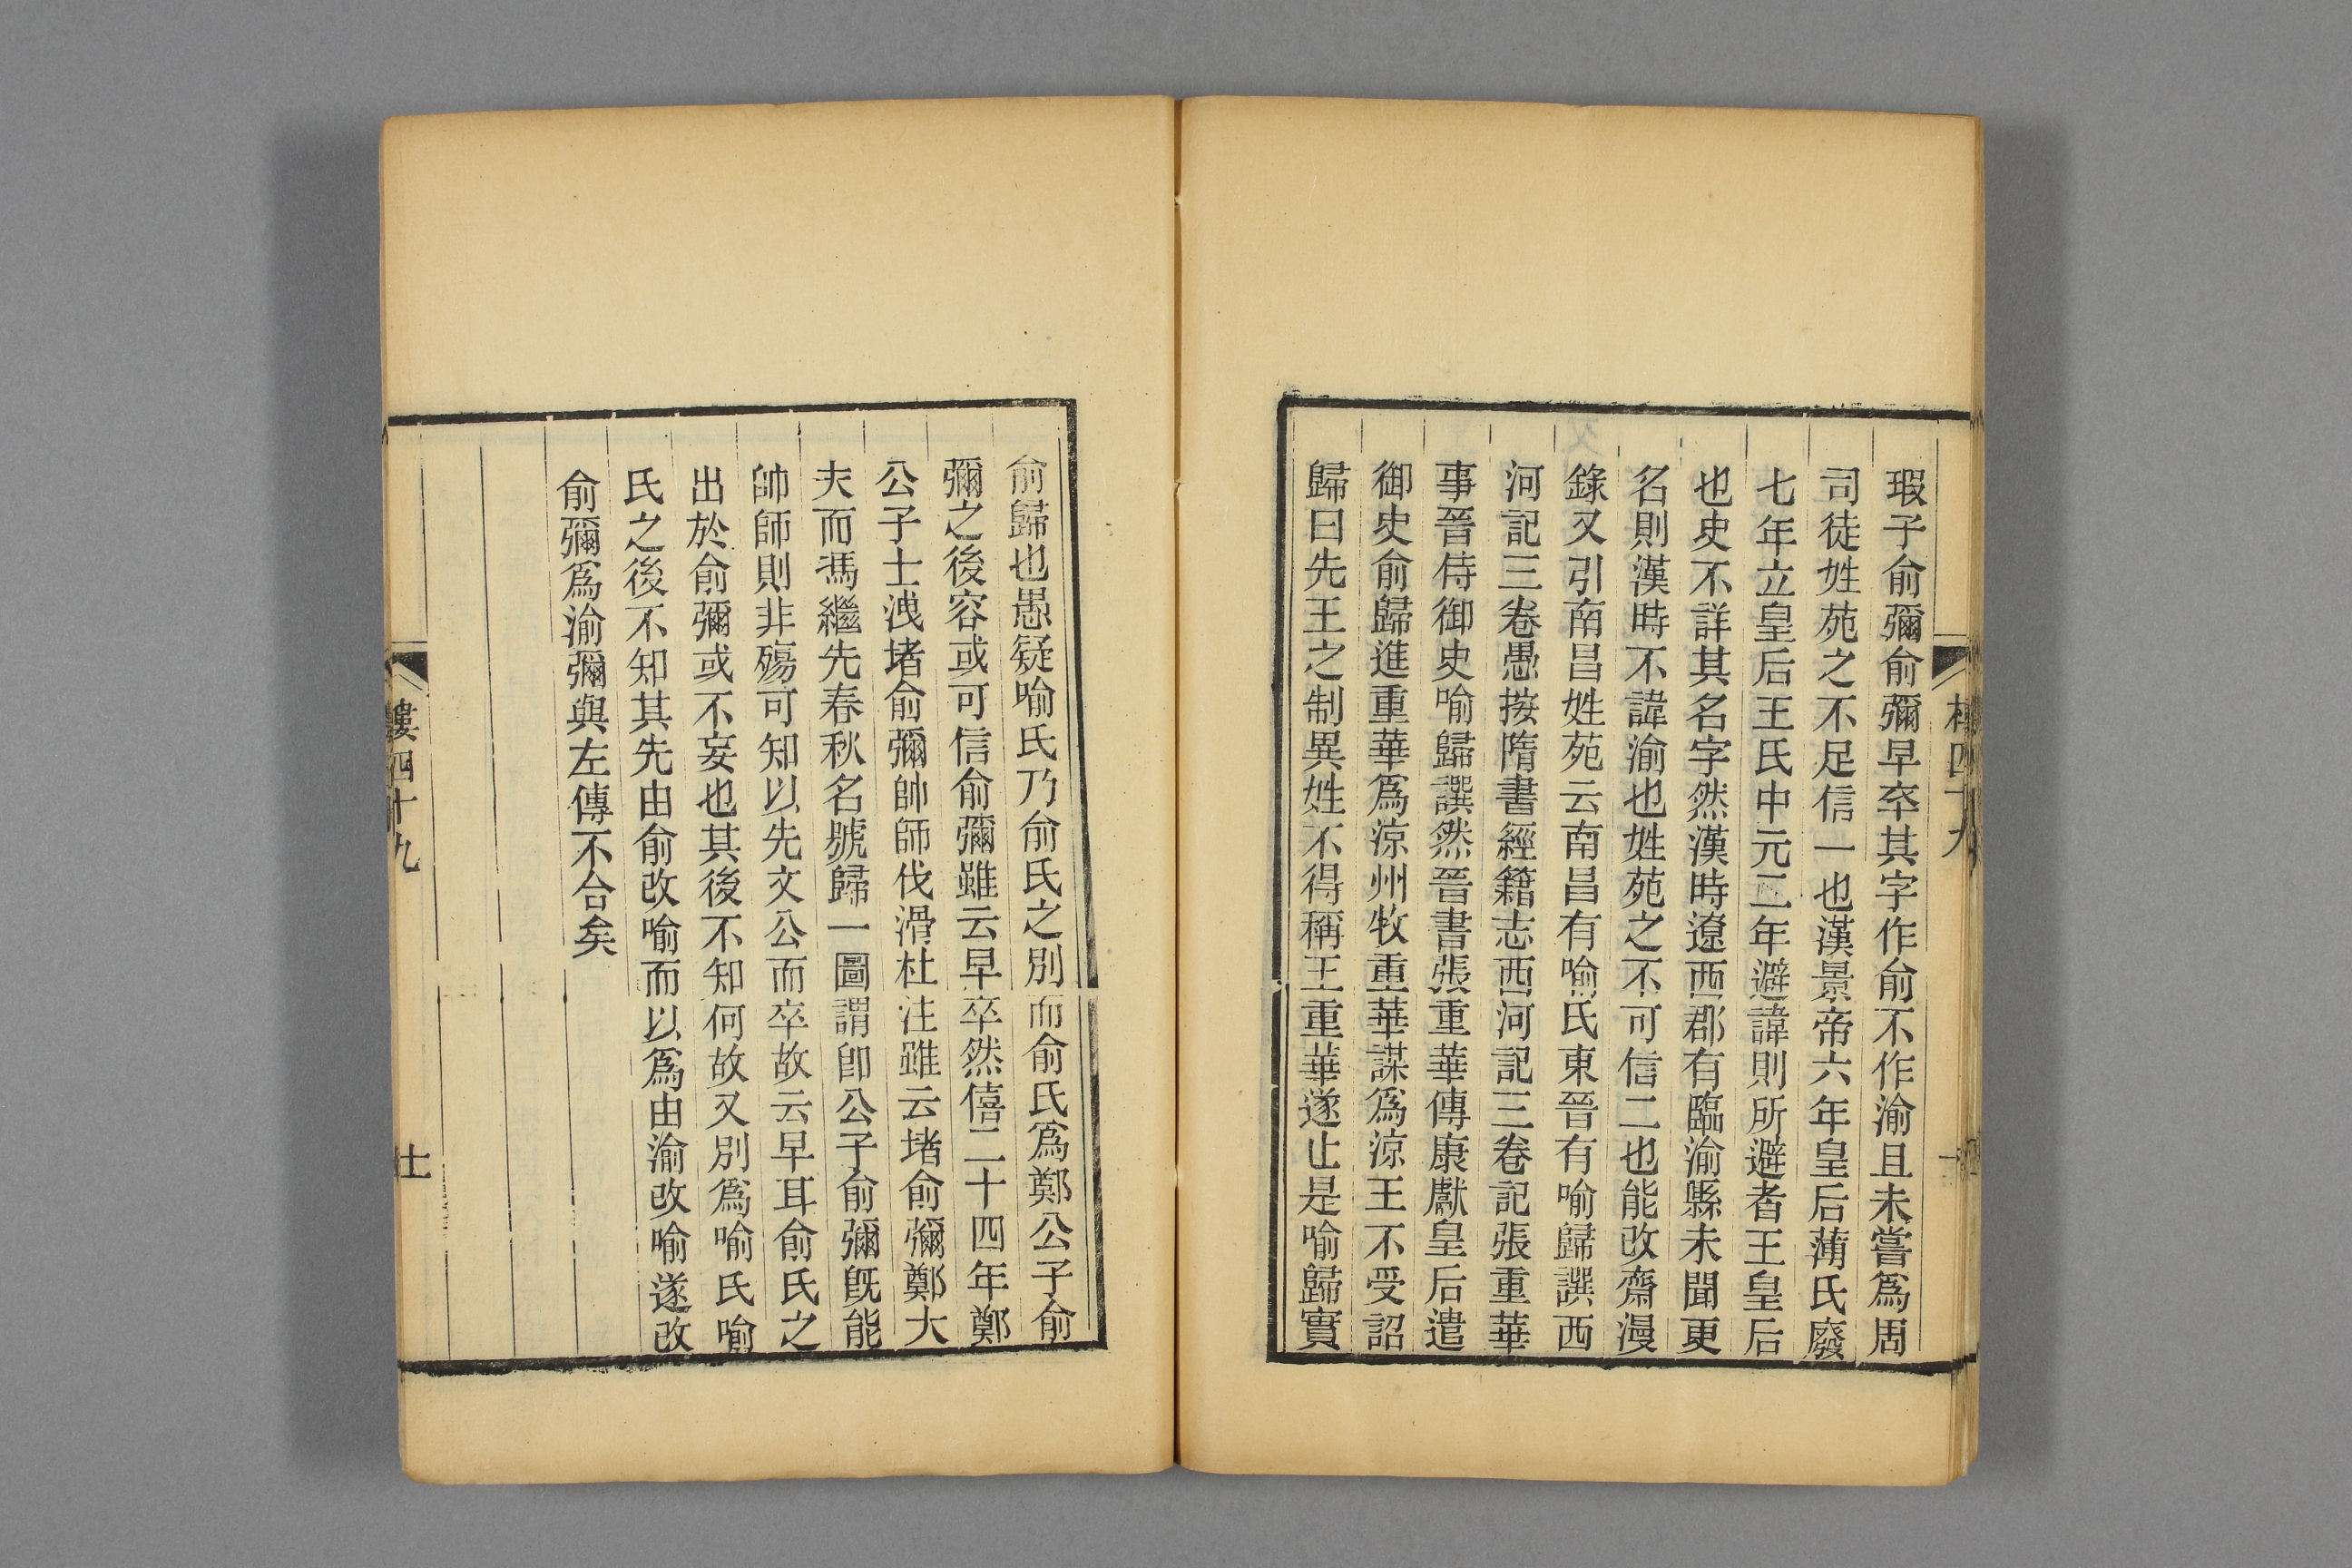 瑕子俞彌俞彌早卒其字作俞不作渝且未嘗爲周
司徒姓苑之不足信一也漢景帝六年皇后薄氏廢
七年立皇后王氏中元二年避諱則所避者王皇后
也史不詳其名字然漢時遼西郡有臨渝縣未聞更
名則漢時不諱渝也姓苑之不可信二也能改齋漫
錄又引南昌姓苑云南昌有喻氏東晉有喻歸譔西
河記三卷愚按隋書經籍志西河記三卷記張重華
事晉侍御史喻歸譔然晉書張重華傳康獻皇后遣
御史俞歸進重華爲涼州牧重華謀爲涼王不受詔
歸曰先王之制異姓不得稱王重華遂止是喻歸實
俞歸也愚疑喻氏乃俞氏之別而俞氏爲鄭公子俞
彌之後容或可信俞彌雖云早卒然僖二十四年鄭
公子士洩堵俞彌帥師伐滑杜注雖云堵俞彌鄭大
夫而馮繼先春秋名號歸一圖謂卽公子俞彌旣能
帥師則非殤可知以先文公而卒故云早耳俞氏之
出於俞彌或不妄也其後不知何故又別爲喻氏喻
氏之後不知其先由俞改喻而以爲由渝改喻遂改
俞彌爲渝彌與左傳不合矣
樓四十九